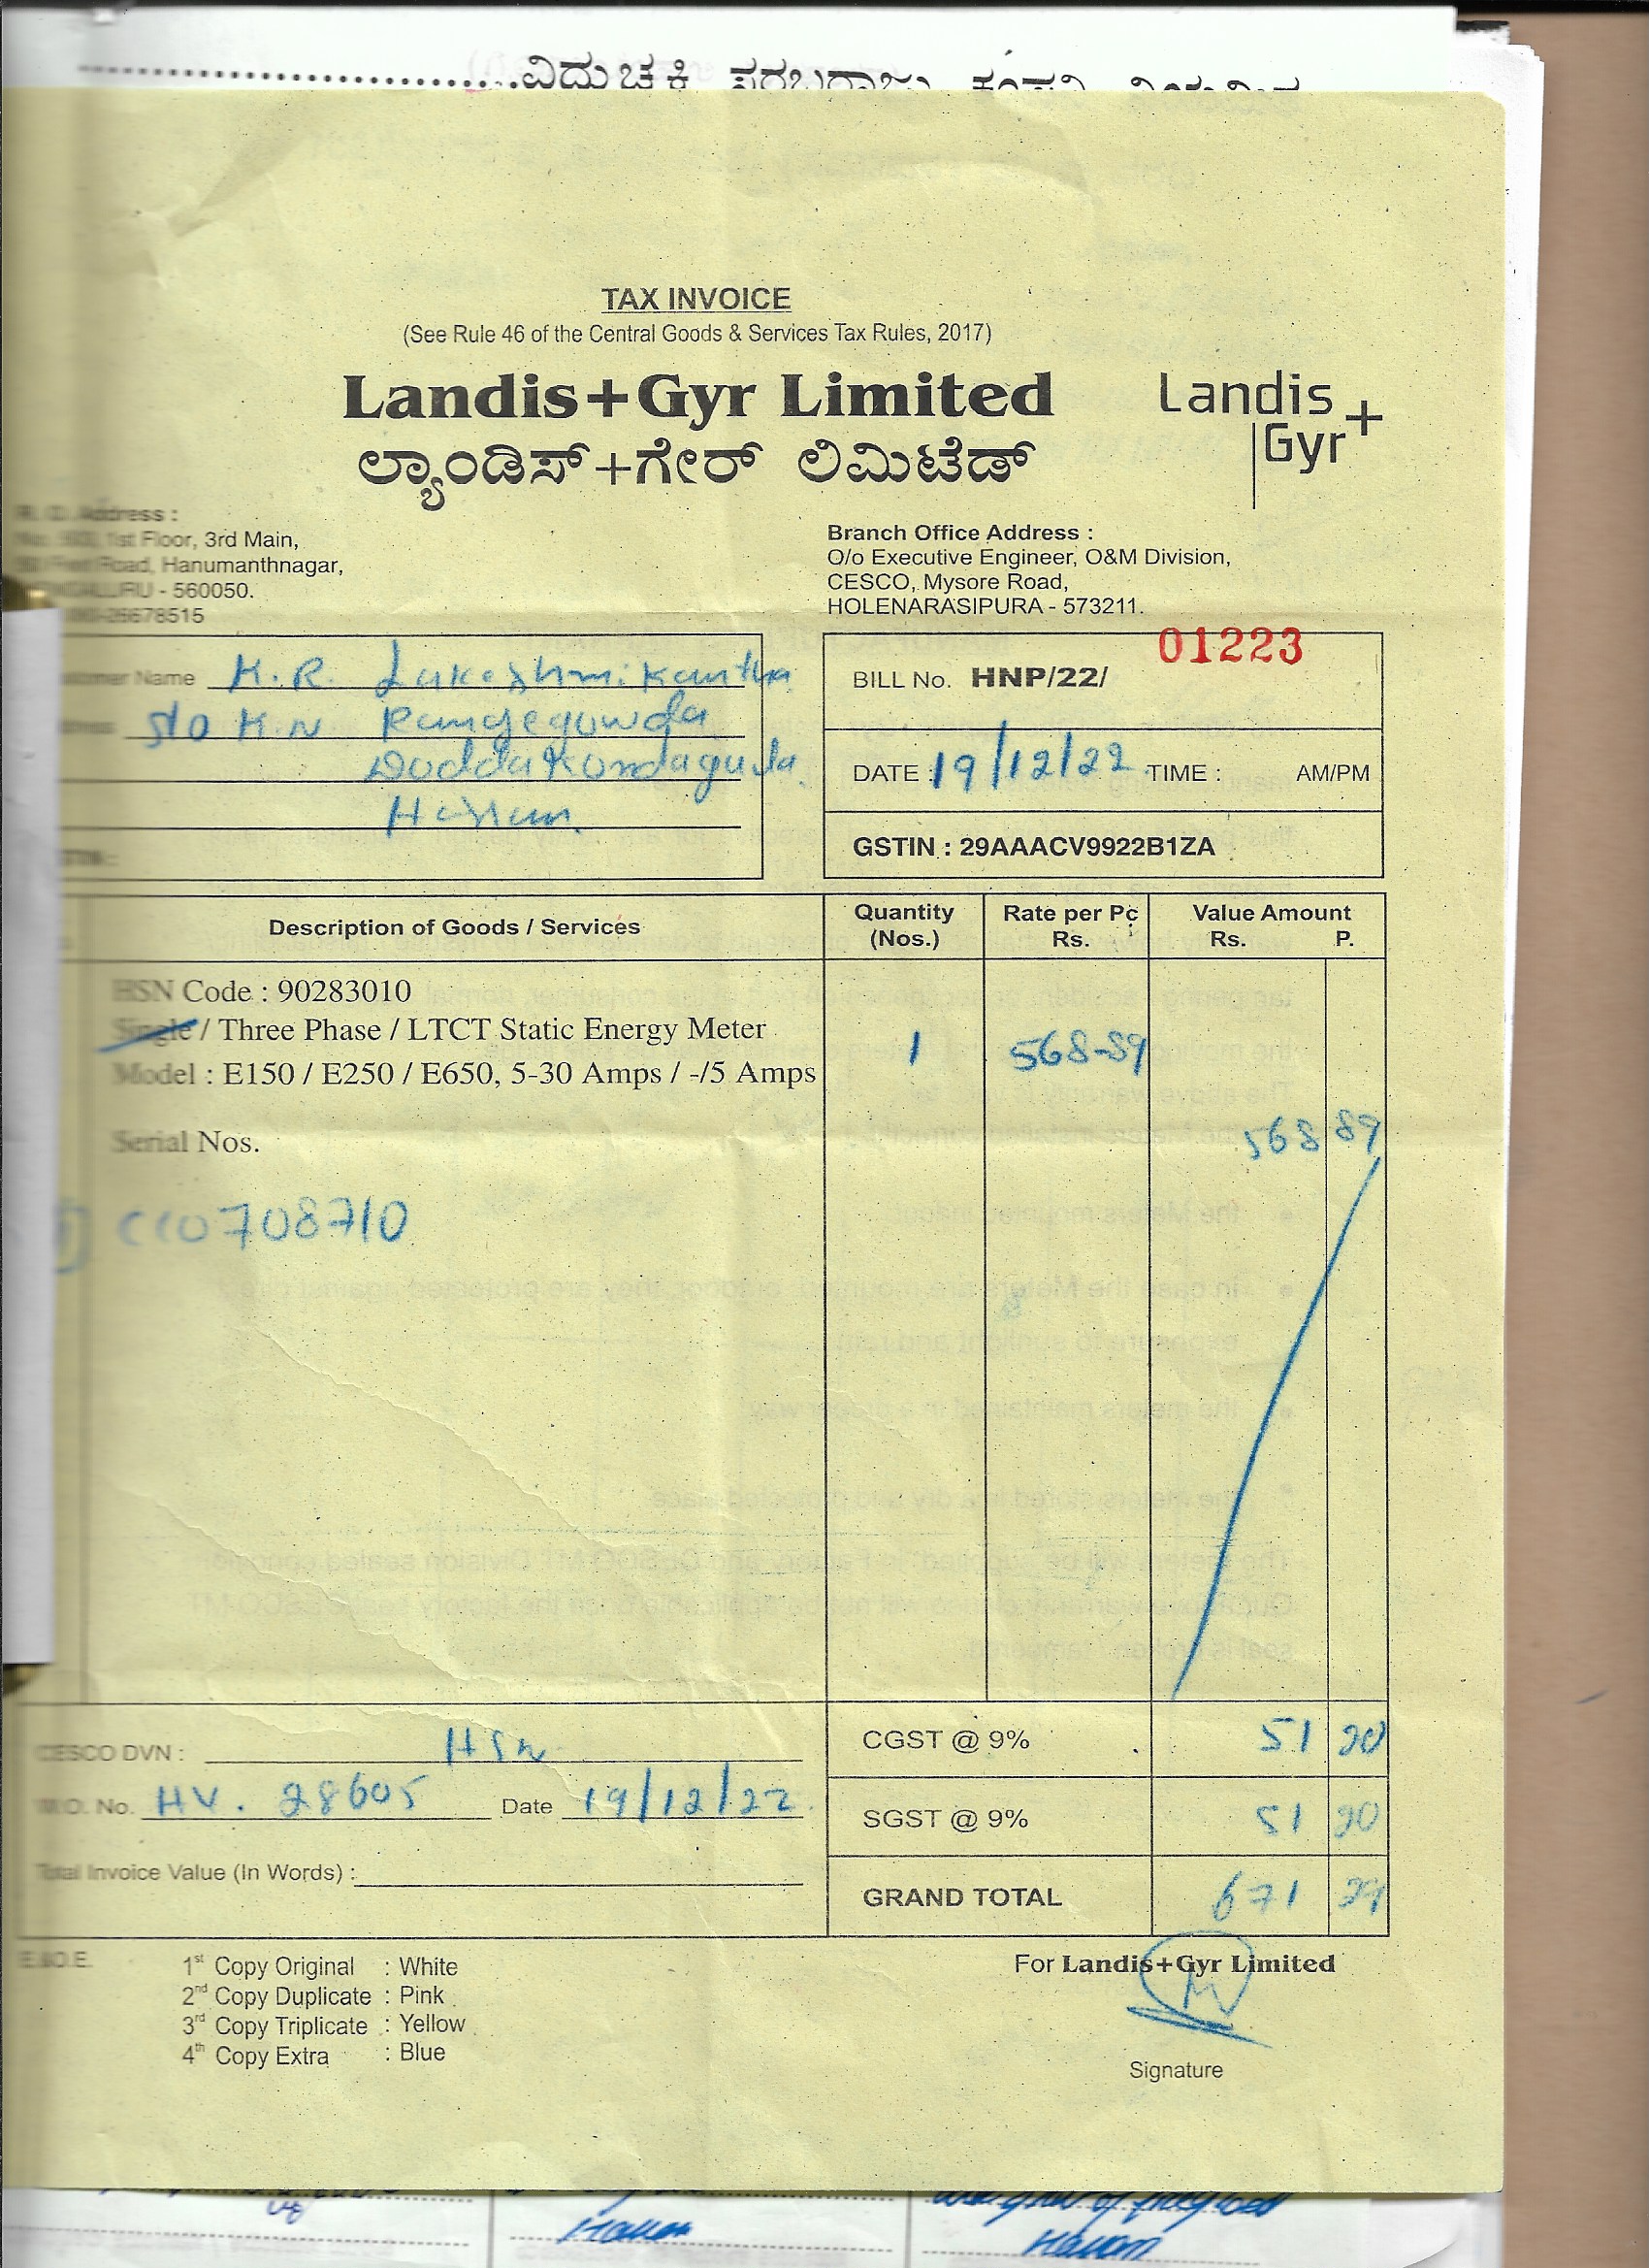 TAX INVOICE
(See Rule 46 of the Central Goods & Services Tax Rules, 2017)
Landis+Gyr Limited
ಲ್ಯಾಂಡಿಸ್+ಗೇರ್ ಲಿಮಿಟೆಡ್
Landis
Gyr+
Address :
1st Floor, 3rd Main,
Road, Hanumanthnagar,
- 560050.
26678515
Branch Office Address :
O/o Executive Engineer, O&M Division,
CESCO, Mysore Road,
HOLENARASIPURA - 573211.
Name K.R. Lakeshmikantha
S/o K.N Rangegowda
Doddakondagula
Hassan
BILL No. HNP/22/ 01223
DATE : 19/12/22 TIME : AM/PM
GSTIN : 29AAACV9922B1ZA
Description of Goods / Services Quantity (Nos.) Rate per Pc Rs. Value Amount Rs. P.
HSN Code : 90283010
Single / Three Phase / LTCT Static Energy Meter
1 568-89
Model : E150 / E250 / E650, 5-30 Amps / -/5 Amps
568 89
Serial Nos.
CC0708710
CESCO DVN : HSN
CGST @ 9% 51 20
W.O. No. HV. 28605 Date 19/12/22
SGST @ 9% 51 20
Total Invoice Value (In Words) :
GRAND TOTAL 671 29
E.&O.E.
1st Copy Original : White
2nd Copy Duplicate : Pink
3rd Copy Triplicate : Yellow
4th Copy Extra : Blue
For Landis+Gyr Limited
Signature
Hassan
Hassan